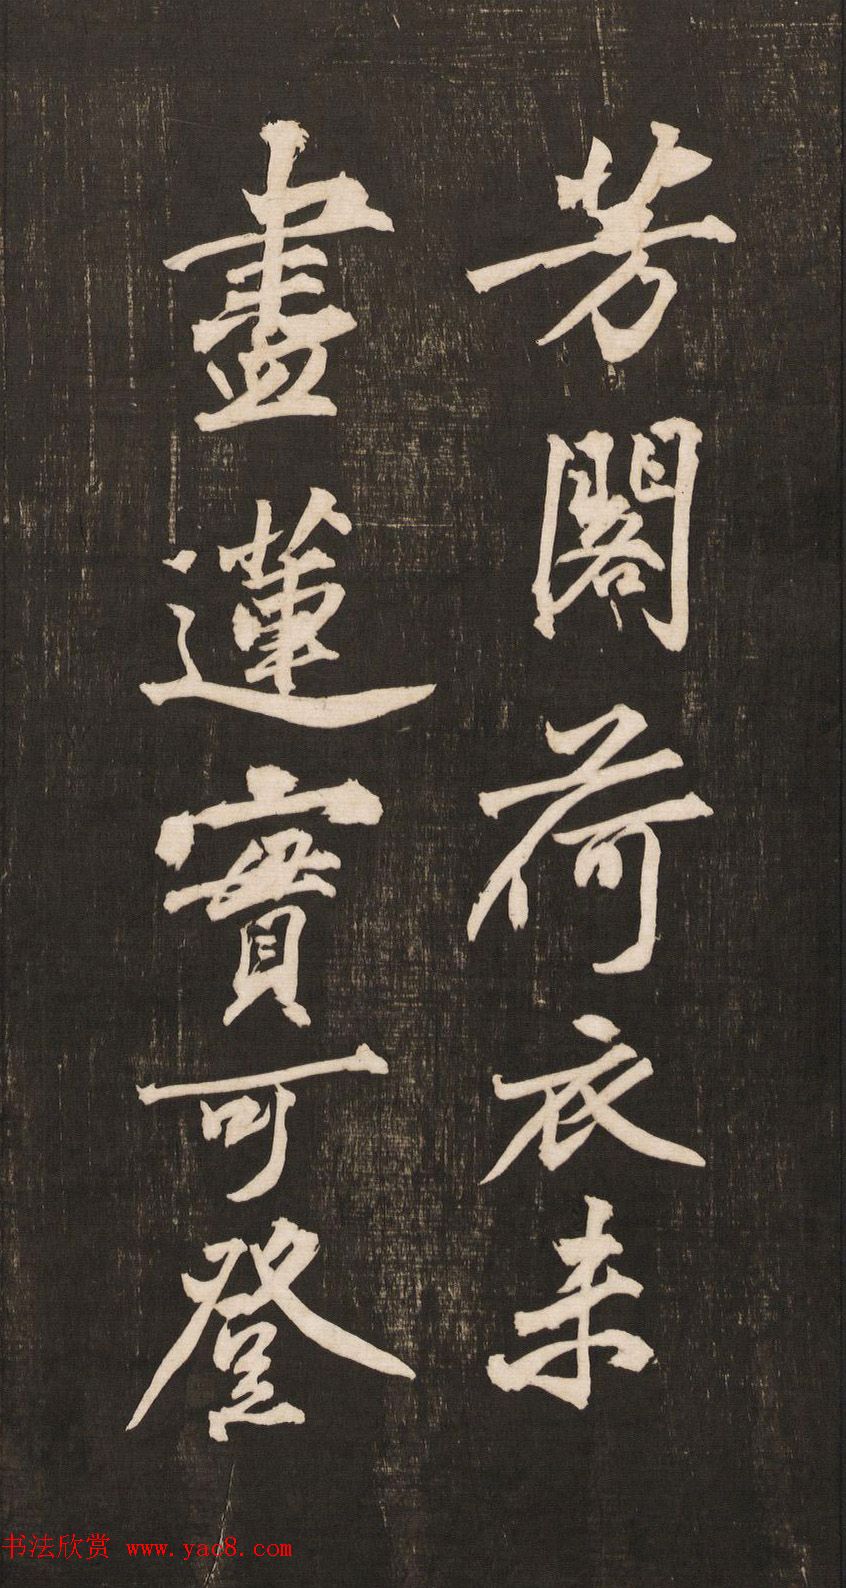 芳閣荷衣未
盡蓮實可登
书法欣赏 www.yac8.com